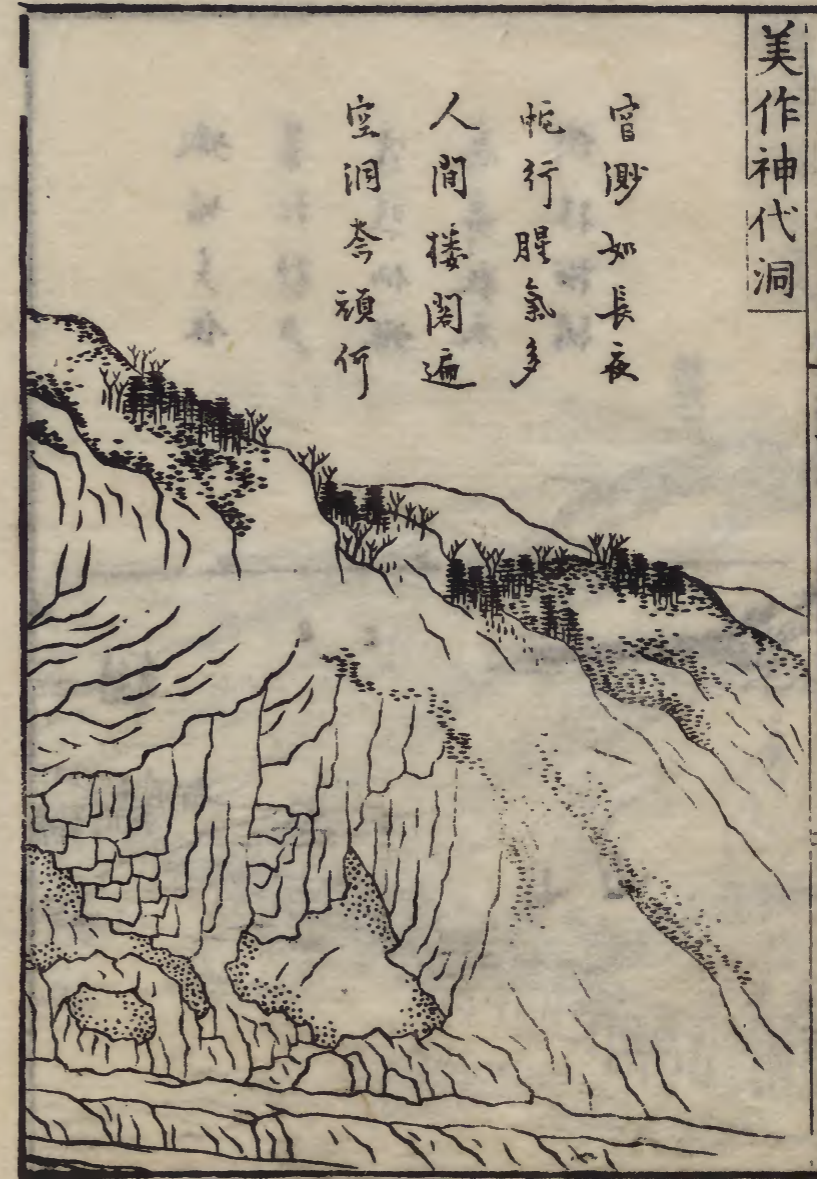 美作神代洞
窅渺如長夜
虵行腥氣多
人間楼閣遍
空洞奈頑何